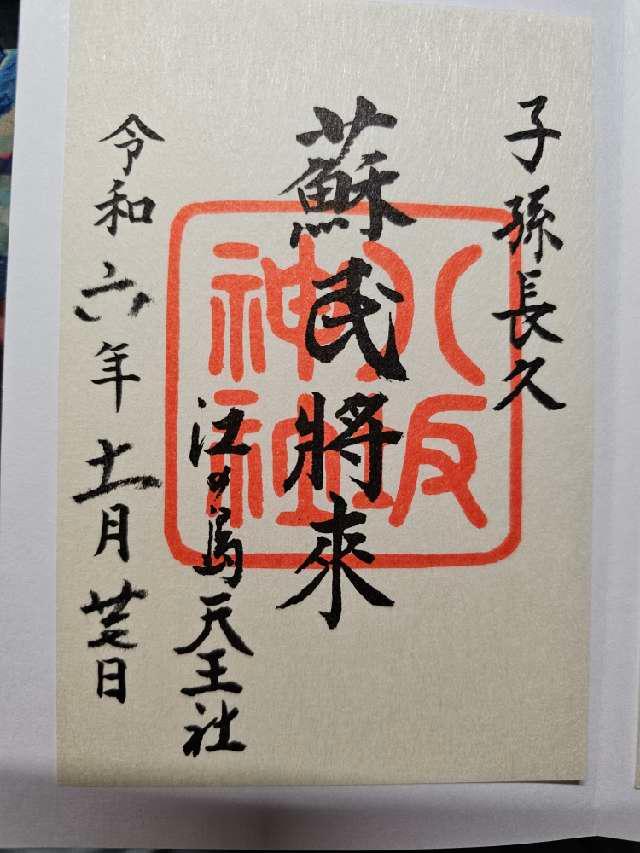 子孫長久
蘇民將來
八坂
神社
江の島天王社
令和六年十一月廿日